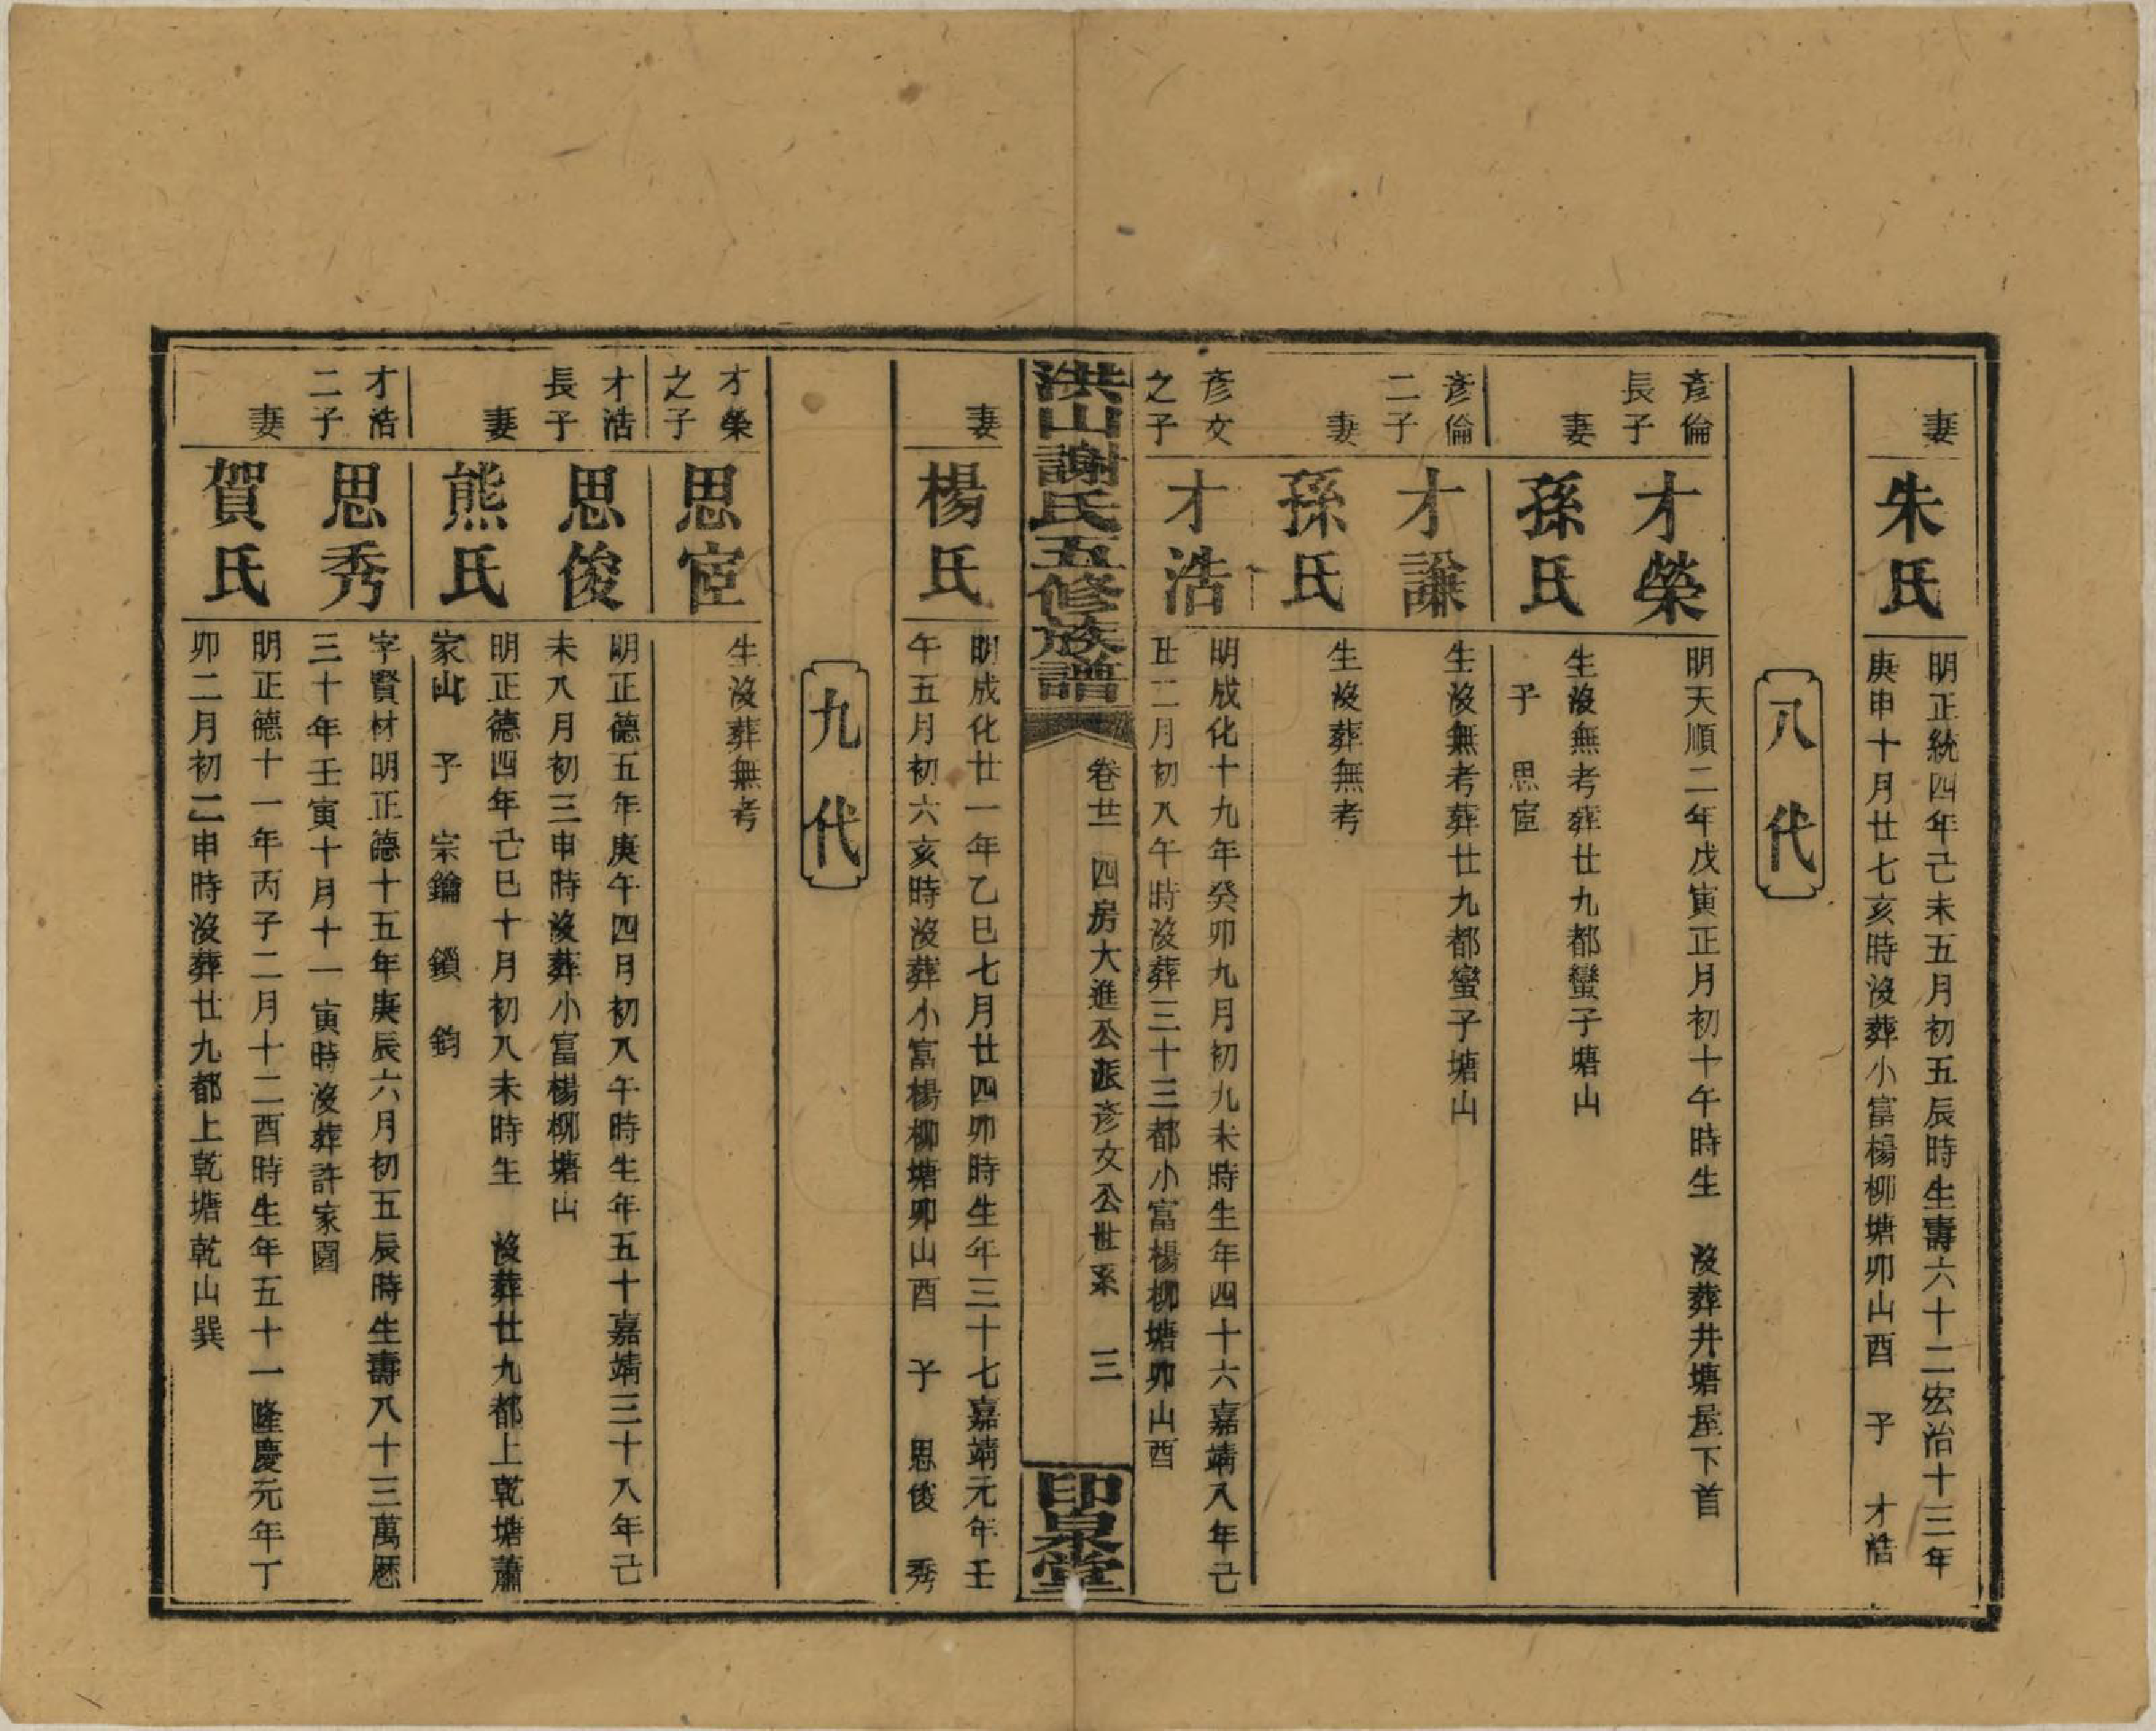 妻
朱氏
明正統四年己未五月初五辰時生壽六十二宏治十三年
庚申十月廿七亥時沒葬小富楊柳塘卯山酉 子 才浩
八代
彥倫
長子
才榮
明天順二年戊寅正月初十午時生 沒葬井塘屋下首
妻
孫氏
生沒無考葬廿九都蠻子塘山
子 思宦
彥倫
二子
才謙
生沒無考葬廿九都蠻子塘山
妻
孫氏
生沒葬無考
彥文
之子
才浩
明成化十九年癸卯九月初九未時生年四十六嘉靖八年己
丑二月初八午時沒葬三十三都小富楊柳塘卯山酉
洪山謝氏五修族譜
卷廿一 四房大進公派彥文公世系 三
印泉堂
妻
楊氏
明成化廿一年乙巳七月廿四卯時生年三十七嘉靖元年壬
午五月初六亥時沒葬小富楊柳塘卯山酉 子 思俊 秀
九代
才榮
之子
思宦
生沒葬無考
才浩
長子
思俊
明正德五年庚午四月初八午時生年五十嘉靖三十八年己
未八月初三申時沒葬小富楊柳塘山
妻
熊氏
明正德四年己巳十月初八未時生 沒葬廿九都上乾塘蕭
家山 子 宗鑰 鎖 鈞
才浩
二子
思秀
字賢材明正德十五年庚辰六月初五辰時生壽八十三萬厯
三十年壬寅十月十一寅時沒葬許家園
妻
賀氏
明正德十一年丙子二月十二酉時生年五十一隆慶元年丁
卯二月初二申時沒葬廿九都上乾塘乾山巽